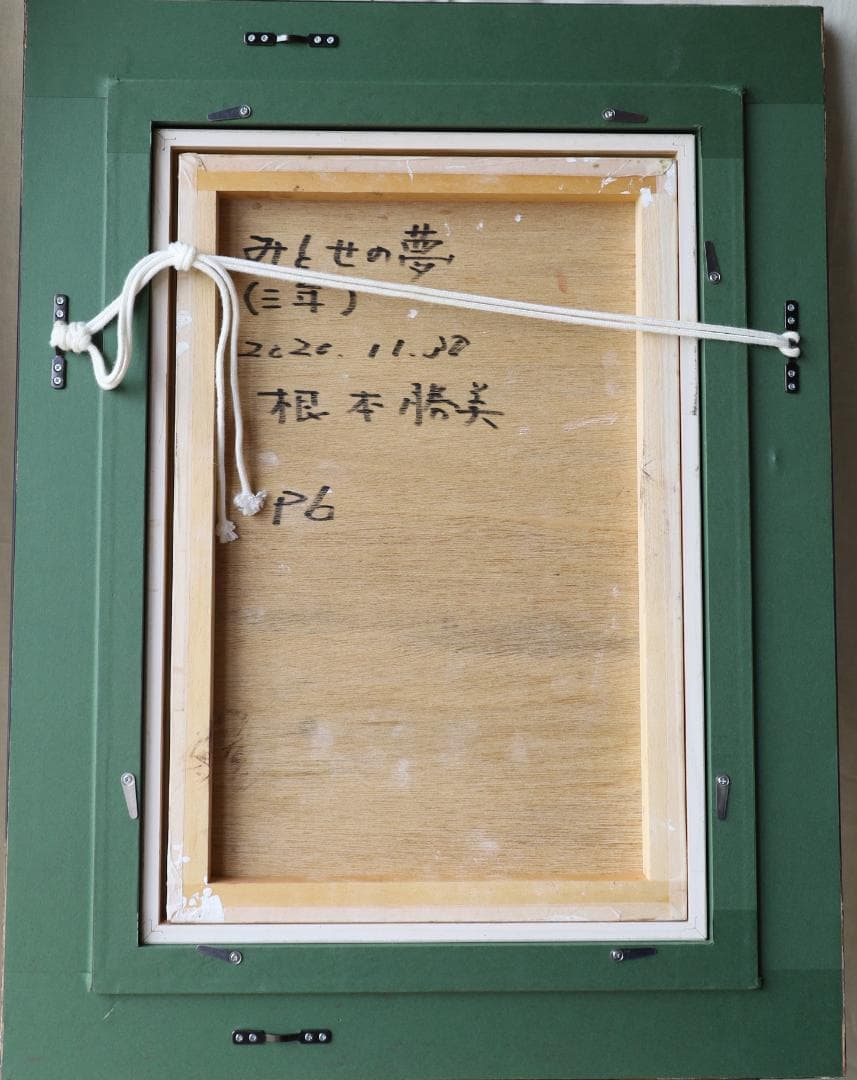 みとせの夢
(三年)
2020.11.30
根本勝美
P6